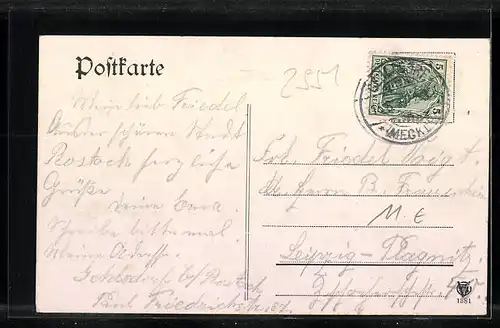 Postkarte
2551
Mein lieb Friedel
Aus der schönen Stadt
Rostock herzliche
Grüße
Deine Cora.
Schreibe bitte mal.
Meine Adresse.
Gehlsdorf b/Rostock
Paul Friedrichstr.
5
5
(MECKL
Frl. Friedel Voigt.
Herrn B.
M. E
Leipzig-Plagwitz
1381